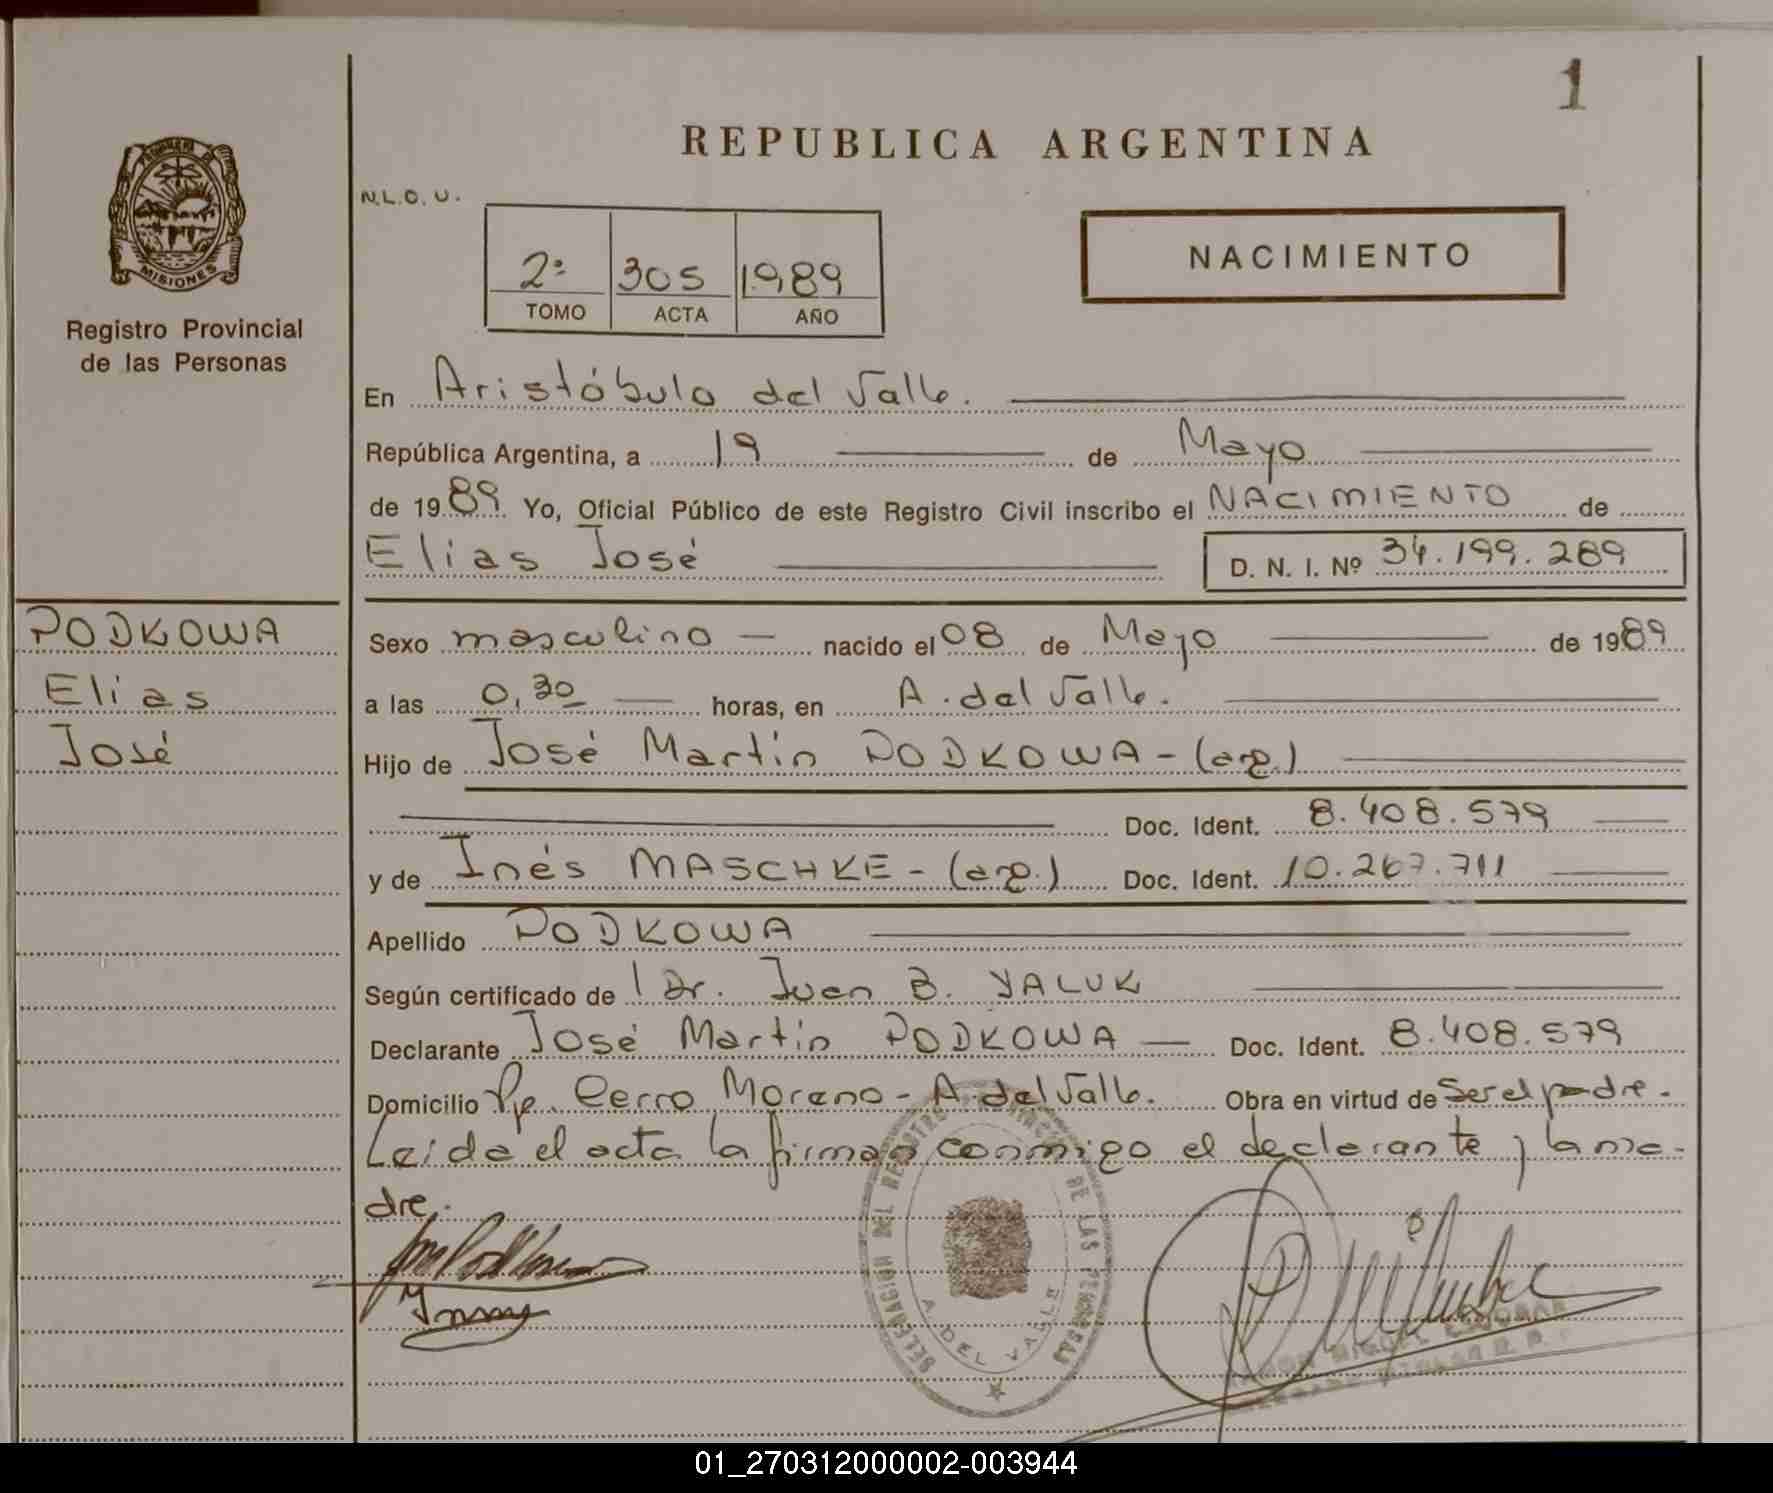 1
REPUBLICA ARGENTINA
N.L.O.U.
MISIONES
Registro Provincial
de las Personas
2º 305 1989
TOMO ACTA AÑO
NACIMIENTO
En Aristóbulo del Valle.
República Argentina, a 19 de Mayo
de 1989. Yo, Oficial Público de este Registro Civil inscribo el NACIMIENTO de
Elias José D. N. I. Nº 34.199.289
PODKOWA
Elias
José
Sexo masculino — nacido el 08 de Mayo de 1989
a las 0,30 — horas, en A. del Valle.
Hijo de José Martín PODKOWA - (arg.)
Doc. Ident. 8.408.579
y de Inés MASCHKE - (arg.) Doc. Ident. 10.267.711
Apellido PODKOWA
Según certificado de l Dr. Juan B. YALUK
Declarante José Martín PODKOWA — Doc. Ident. 8.408.579
Domicilio Pje. Cerro Moreno - A. del Valle. Obra en virtud de Ser el padre.
Leída el acta la firman conmigo el declarante y la ma-
dre.
DELEGACIÓN DEL REGISTRO PROVINCIAL DE LAS PERSONAS
A. DEL VALLE
MIGUEL
01_270312000002-003944